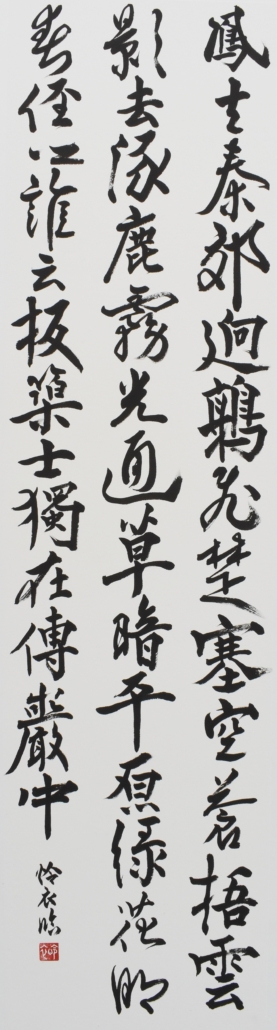 鳳出秦郊迥鶉飛楚塞空蒼梧雲
影去涿鹿霧光通草暗平原綠花明
春徑紅誰云板築士獨在傅巖中